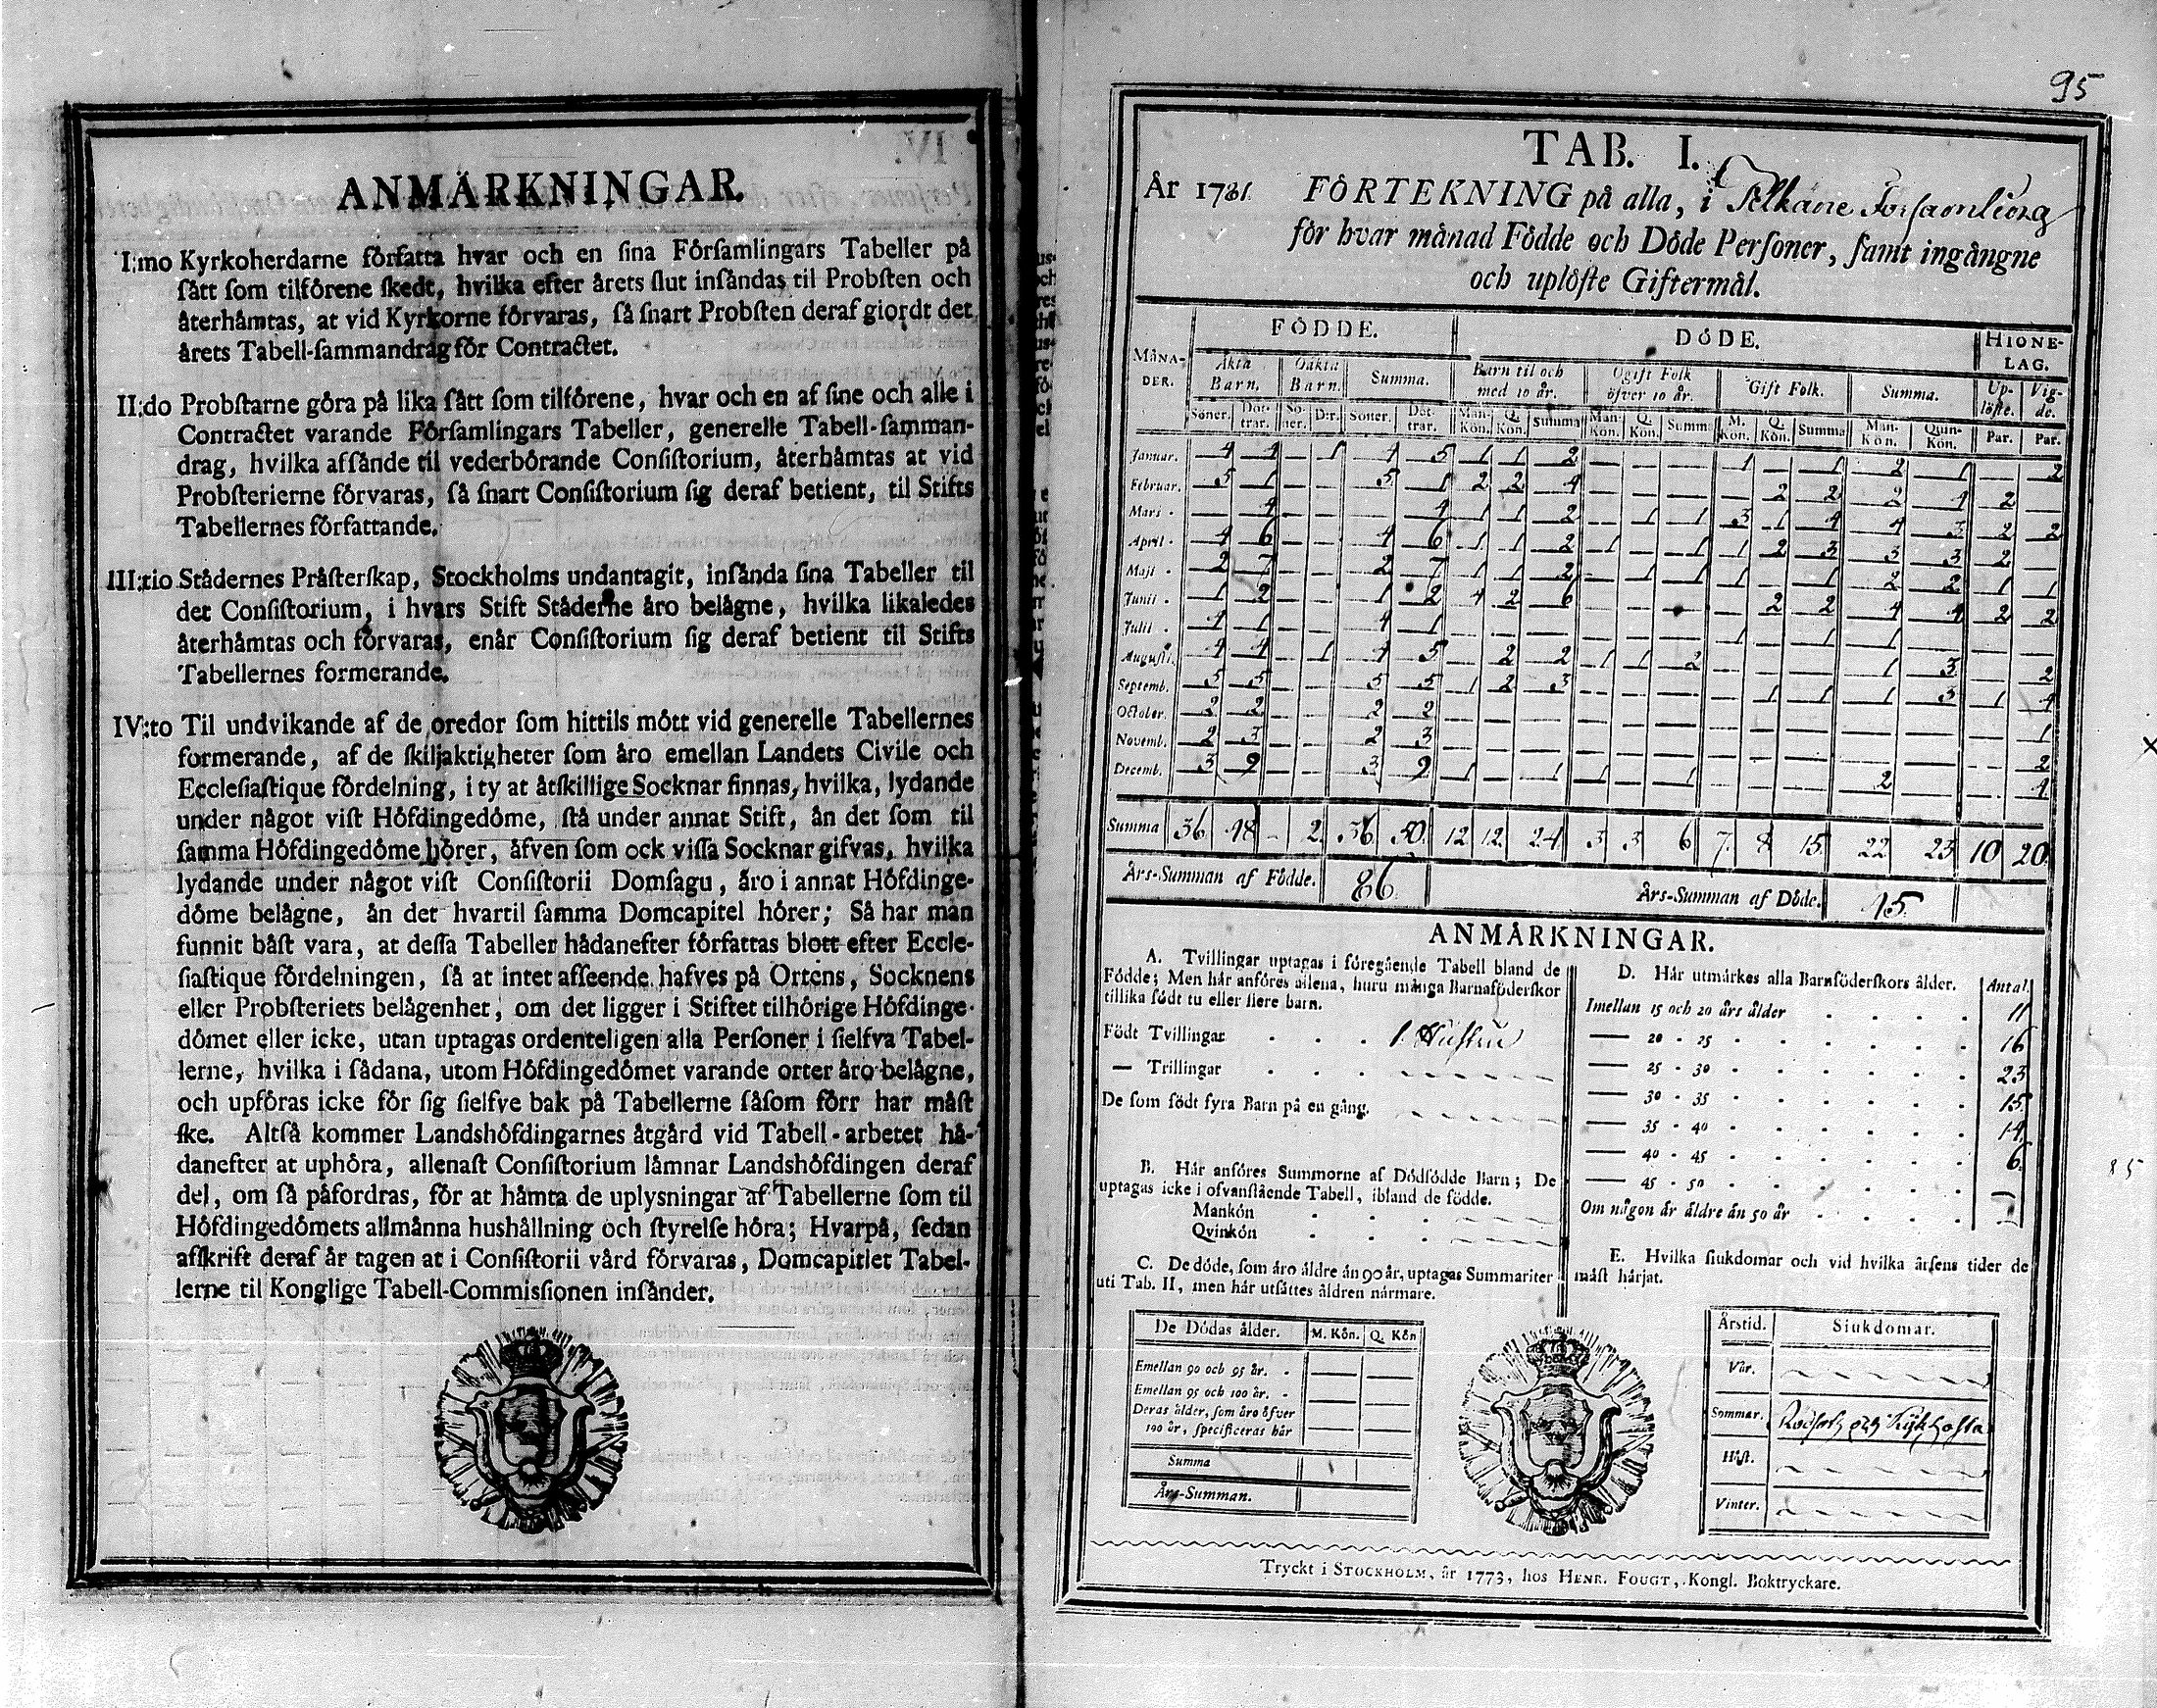 ANMÄRKNINGAR.
I:mo Kyrkoherdarne författa hvar och en sina Församlingars Tabeller på
sått som tilförene skedt, hvilka efter årets slut insåndas til Probsten och
återhåmtas, at vid Kyrkorne förvaras, så snart Probsten deraf giordt det
årets Tabell-sammandrag för Contractet.
II:do Probstarne göra på lika sått som tilförene, hvar och en af sine och alle i
Contractet varande Församlingars Tabeller, generelle Tabell-samman-
drag, hvilka afsånde til vederbörande Consistorium, återhåmtas at vid
Probsterierne förvaras, så snart Consistorium sig deraf betient, til Stifts
Tabellernes författande.
III:tio Stådernes Pråsterskap, Stockholms undantagit, insånda sina Tabeller til
det Consistorium, i hvars Stift Ståderne åro belågne, hvilka likaledes
återhåmtas och förvaras, enår Consistorium sig deraf betient til Stifts
Tabellernes formerande.
IV:to Til undvikande af de oredor som hittils mött vid generelle Tabellernes
formerande, af de skiljaktigheter som åro emellan Landets Civile och
Ecclesiastique fördelning, i ty at åtskillige Socknar finnas, hvilka, lydande
under något vist Höfdingedöme, stå under annat Stift, ån det som til
samma Höfdingedöme hörer, åfven som ock vissa Socknar gifvas, hvilka
lydande under något vist Consistorii Domsagu, åro i annat Höfdinge-
döme belågne, ån det hvartil samma Domcapitel hörer; Så har man
funnit båst vara, at dessa Tabeller hådanefter författas blott efter Eccle-
siastique fördelningen, så at intet afseende hafves på Ortens, Socknens
eller Probsteriets belågenhet, om det ligger i Stiftet tilhörige Höfdinge-
dömet eller icke, utan uptagas ordenteligen alla Personer i sielfva Tabel-
lerne, hvilka i sådana, utom Höfdingedömet varande orter åro belågne,
och upföras icke för sig sielfve bak på Tabellerne såsom förr har måst
ske. Altså kommer Landshöfdingarnes åtgård vid Tabell-arbetet hå-
danefter at uphöra, allenast Consistorium låmnar Landshöfdingen deraf
del, om så påfordras, för at håmta de uplysningar af Tabellerne som til
Höfdingedömets allmånna hushållning och styrelse höra; Hvarpå, sedan
afskrift deraf år tagen at i Consistorii vård förvaras, Domcapitlet Tabel-
lerne til Konglige Tabell-Commissionen insånder.
95
TAB. I.
År 1781. FÖRTEKNING på alla, i Församling
för hvar månad Födde och Döde Personer, samt ingångne
och uplöste Giftermål.
MåNA-DER. FÖDDE. DÖDE. HIONE-LAG.
Åkta Barn. Oåkta Barn. Summa. Barn til och med 10 år. Ogift Folk öfver 10 år. Gift Folk. Summa. Up-löste. Vig-de.
Söner. Döt-trar. Sö-ner. D:r. Söner. Döt-trar. Man-Kön. Q. Kön. Summa Man-Kön. Q. Kön. Summ. M. Kön. Q. Kön. Summa Man-Kön. Quin-Kön. Par. Par.
Januar. 4 4 — 1 4 5 1 1 2 — — — 1 — 1 2 1 — 2
Februar. 5 1 — — 5 1 2 2 4 — — — — 2 2 2 4 2 —
Mart. — 4 — — — 4 1 1 2 — 1 1 3 1 4 4 3 2 2
April. 4 6 — — 4 6 1 1 2 1 — 1 1 2 3 3 3 2 —
Maji. 2 7 — — 2 7 1 1 2 — 1 1 1 — 1 2 2 1 1
Junii. 1 2 — — 1 2 4 2 6 — — — — 2 2 4 4 2 2
Julii. 4 1 — — 4 1 — — — — — — 1 — 1 1 — — —
Augusti. 4 4 — 1 4 5 — 2 2 1 1 2 — — — 1 3 — 2
Septemb. 5 5 — — 5 5 1 2 3 — — — — 1 1 1 3 1 4
October. 2 2 — — 2 2 — — — — — — — — — — — — 1
Novemb. 2 3 — — 2 3 — — — — — — — — — — — — 2
Decemb. 3 9 — — 3 9 1 — 1 1 — 1 — — — 2 — — 4
Summa 36 48 - 2 36 50 12 12 24 3 3 6 7 8 15 22 23 10 20
Års-Summan af Födde. 86. Års-Summan af Döde. 45.
ANMÄRKNINGAR.
A. Tvillingar uptagas i föregående Tabell bland de
Födde; Men hår anföres allena, huru många Barnaföderskor
tillika födt tu eller flere barn.
Födt Tvillingar . . . 1 Hustru
— Trillingar . . .
De som födt fyra Barn på en gång.
B. Hår anföres Summorne af Dödfödde Barn; De
uptagas icke i ofvanstående Tabell, ibland de födde.
Mankön . . .
Qvinkön . . .
C. De döde, som åro åldre ån 90 år, uptagas Summariter
uti Tab. II, men hår utsåttes åldren nårmare.
De Dödas ålder. M. Kön. Q. Kön
Emellan 90 och 95 år. — —
Emellan 95 och 100 år. — —
Deras ålder, som åro öfver
100 år, specificeras hår — —
Summa
Års-Summan.
D. Hår utmårkes alla Barnföderskors ålder. Antal.
Imellan 15 och 20 års ålder 11
— 20 - 25 16
— 25 - 30 23
— 30 - 35 15
— 35 - 40 14
— 40 - 45 6
— 45 - 50
Om någon år åldre ån 50 år
E. Hvilka siukdomar och vid hvilka årsens tider de
måst hårjat.
Årstid. Siukdomar.
Vår.
Sommar. Rödsot och Kikhosta
Håst.
Vinter.
Tryckt i STOCKHOLM, år 1773, hos HENR. FOUGT, Kongl. Boktryckare.
85